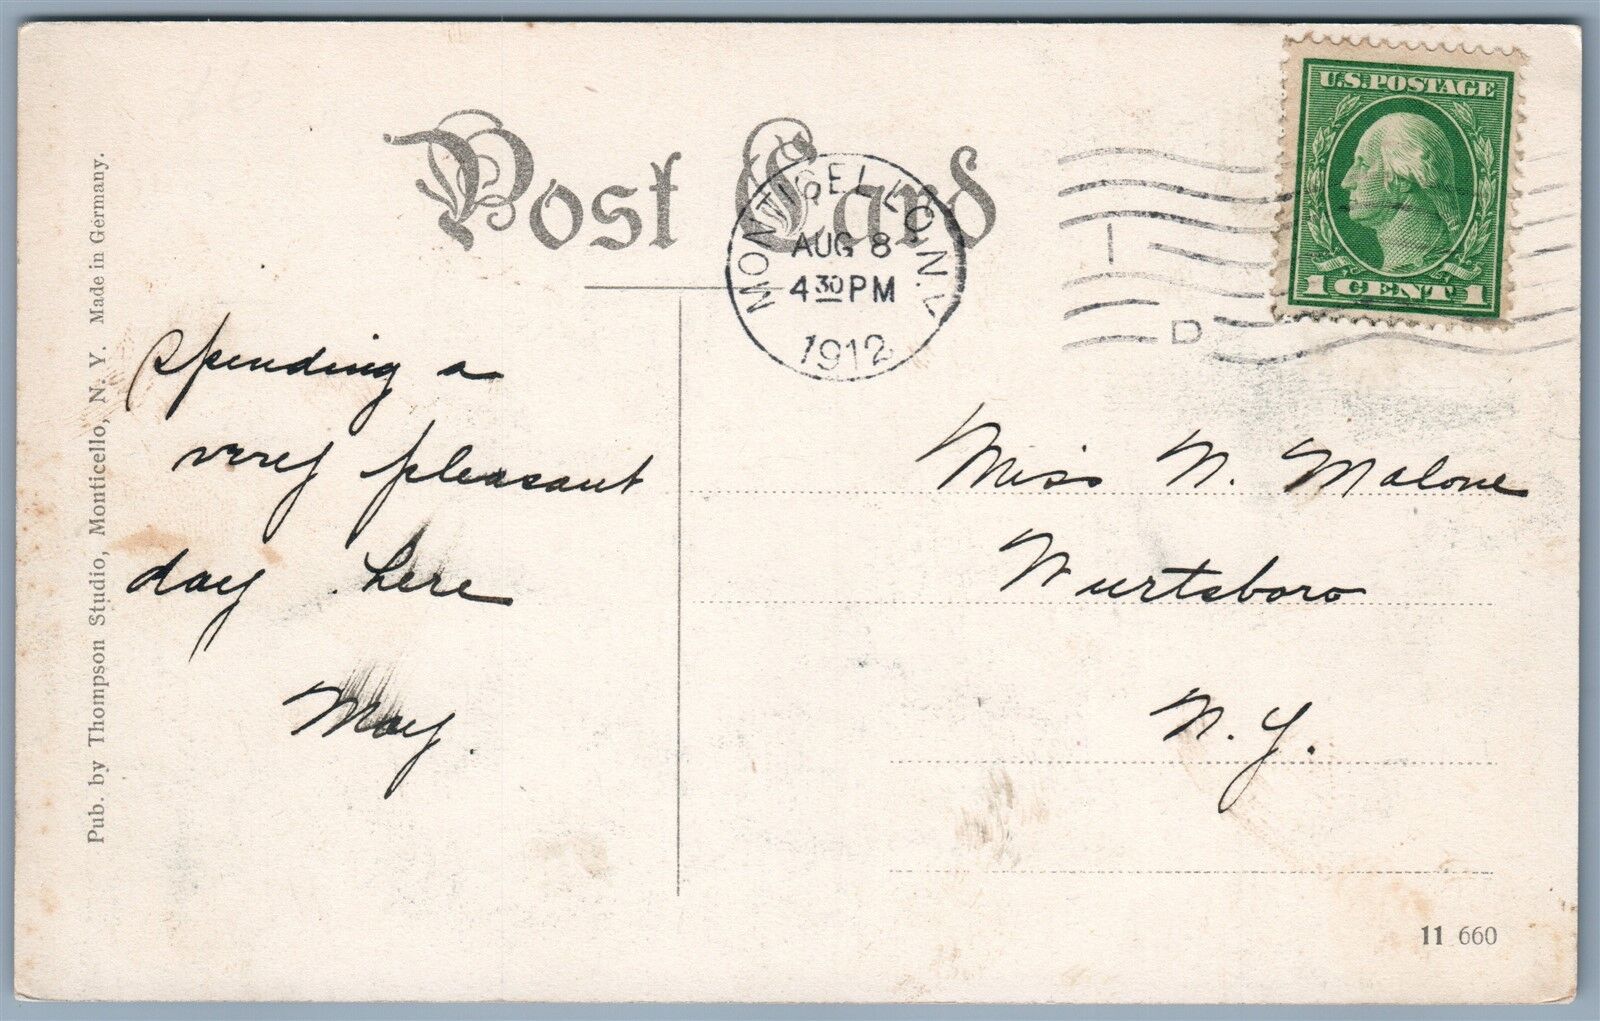 Post Card
U.S. POSTAGE
1 CENT 1
MONTICELLO, N.Y.
AUG 8
4 30 PM
1912
D
Pub. by Thompson Studio, Monticello, N. Y. Made in Germany.
Spending a
very pleasant
day here
May.
Miss N. Malone
Wurtsboro
N. Y.
11 660